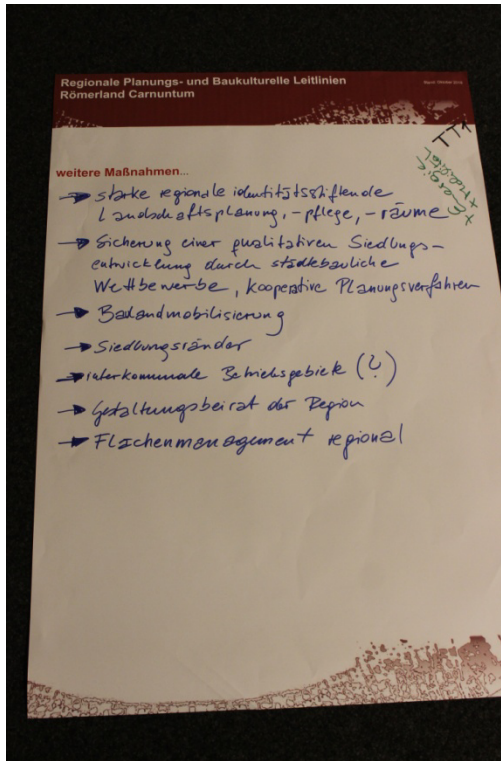 Regionale Planungs- und Baukulturelle Leitlinien
Römerland Carnuntum
weitere Maßnahmen...
→ starke regionale identitätsstiftende
Landschaftsplanung, -pflege, -räume
→ Sicherung einer qualitativen Siedlungs-
entwicklung durch städtebauliche
Wettbewerbe, kooperative Planungsverfahren
→ Baulandmobilisierung
→ Siedlungsränder
→ interkommunale Betriebsgebiete (?)
→ Gestaltungsbeirat der Region
→ Flächenmanagement regional
+ Energie
+ Mobilität